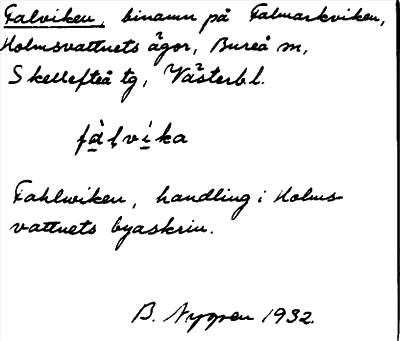 Falviken, binamn på Falmarkviken,
Holmsvattnets ägor, Bureå sn,
Skellefteå tg, Västerb.l.
fàlvíka
Fahlwiken, handling i Holms-
vattnets byaskrin.
B. Nygren 1932.